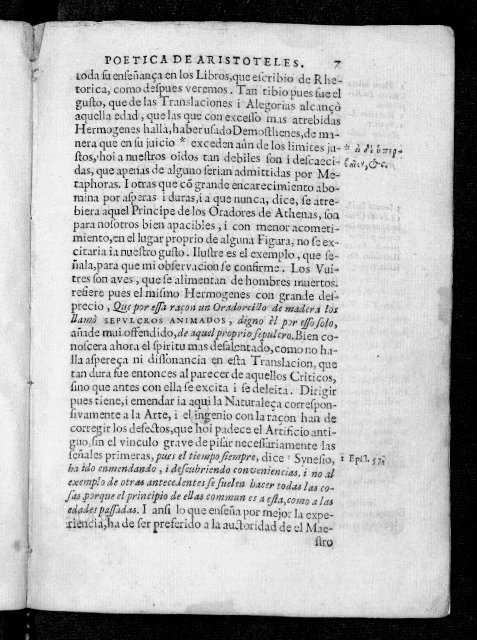 POETICA DE ARISTOTELES. 7
toda su enseñança en los Libros, que escribio de Rhe-
torica, como despues veremos. Tan tibio pues fue el
gusto, que de las Translaciones i Alegorias alcançò
aquella edad, que las que con excesso mas atrebidas
Hermogenes halla, haber usado Demosthenes, de ma-
nera que en su juicio * exceden aún de los limites ju-
stos, hoi a nuestros oidos tan debiles son i descaeci-
das, que apenas de alguno serian admittidas por Me-
taphoras. I otras que cō grande encarecimiento abo-
mina por asperas i duras, i a que nunca, dice, se atre-
biera aquel Principe de los Oradores de Athenas, son
para nosotros bien apacibles, i con menor acometi-
miento, en el lugar proprio de alguna Figura, no se ex-
citaria ia nuestro gusto. Ilustre es el exemplo, que se-
ñala, para que mi observacion se confirme. Los Vui-
tres son aves, que se alimentan de hombres muertos.
refiere pues el mismo Hermogenes con grande des-
precio, Que por essa raçon un Oradorcillo de madera los
llamò SEPULCROS ANIMADOS, digno èl por esso solo,
añade mui offendido, de aquel proprio sepulcro. Bien co-
noscera ahora el spiritu mas desalentado, como no ha-
lla aspereça ni dissonancia en esta Translacion, que
tan dura fue entonces al parecer de aquellos Criticos,
sino que antes con ella se excita i se deleita. Dirigir
pues tiene, i emendar ia aqui la Naturaleça correspon-
sivamente a la Arte, i el ingenio con la raçon han de
corregir los defectos, que hoi padece el Artificio anti-
guo, sin el vinculo grave de pisar necessariamente las
señales primeras, pues el tiempo siempre, dice ¹ Synesio,
ha ido enmendando, i descubriendo conveniencias. i no al
exemplo de otras antecedentes se suelen hacer todas las co-
sas, porque el principio de ellas commun es a esta, como a las
edades passadas. I ansi lo que enseña por mejor la expe-
riencia, ha de ser preferido a la auctoridad de el Mae-
stro
1 Epist. 57.